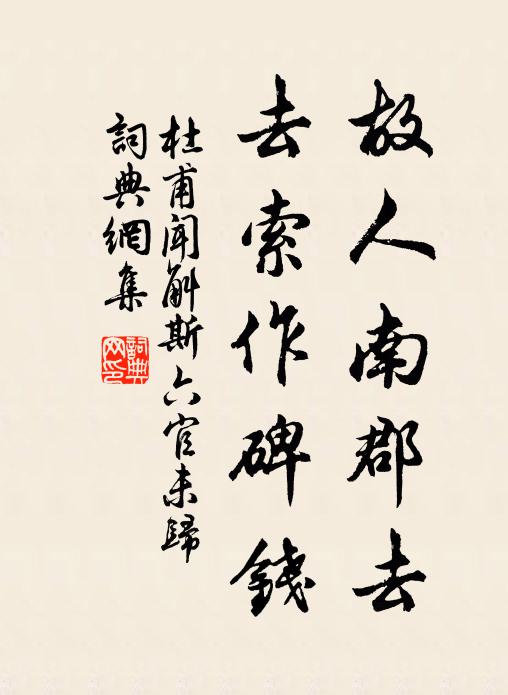 故人南郡去
去索作碑錢
杜甫聞斛斯六官未歸
詞典網集
詞典网印